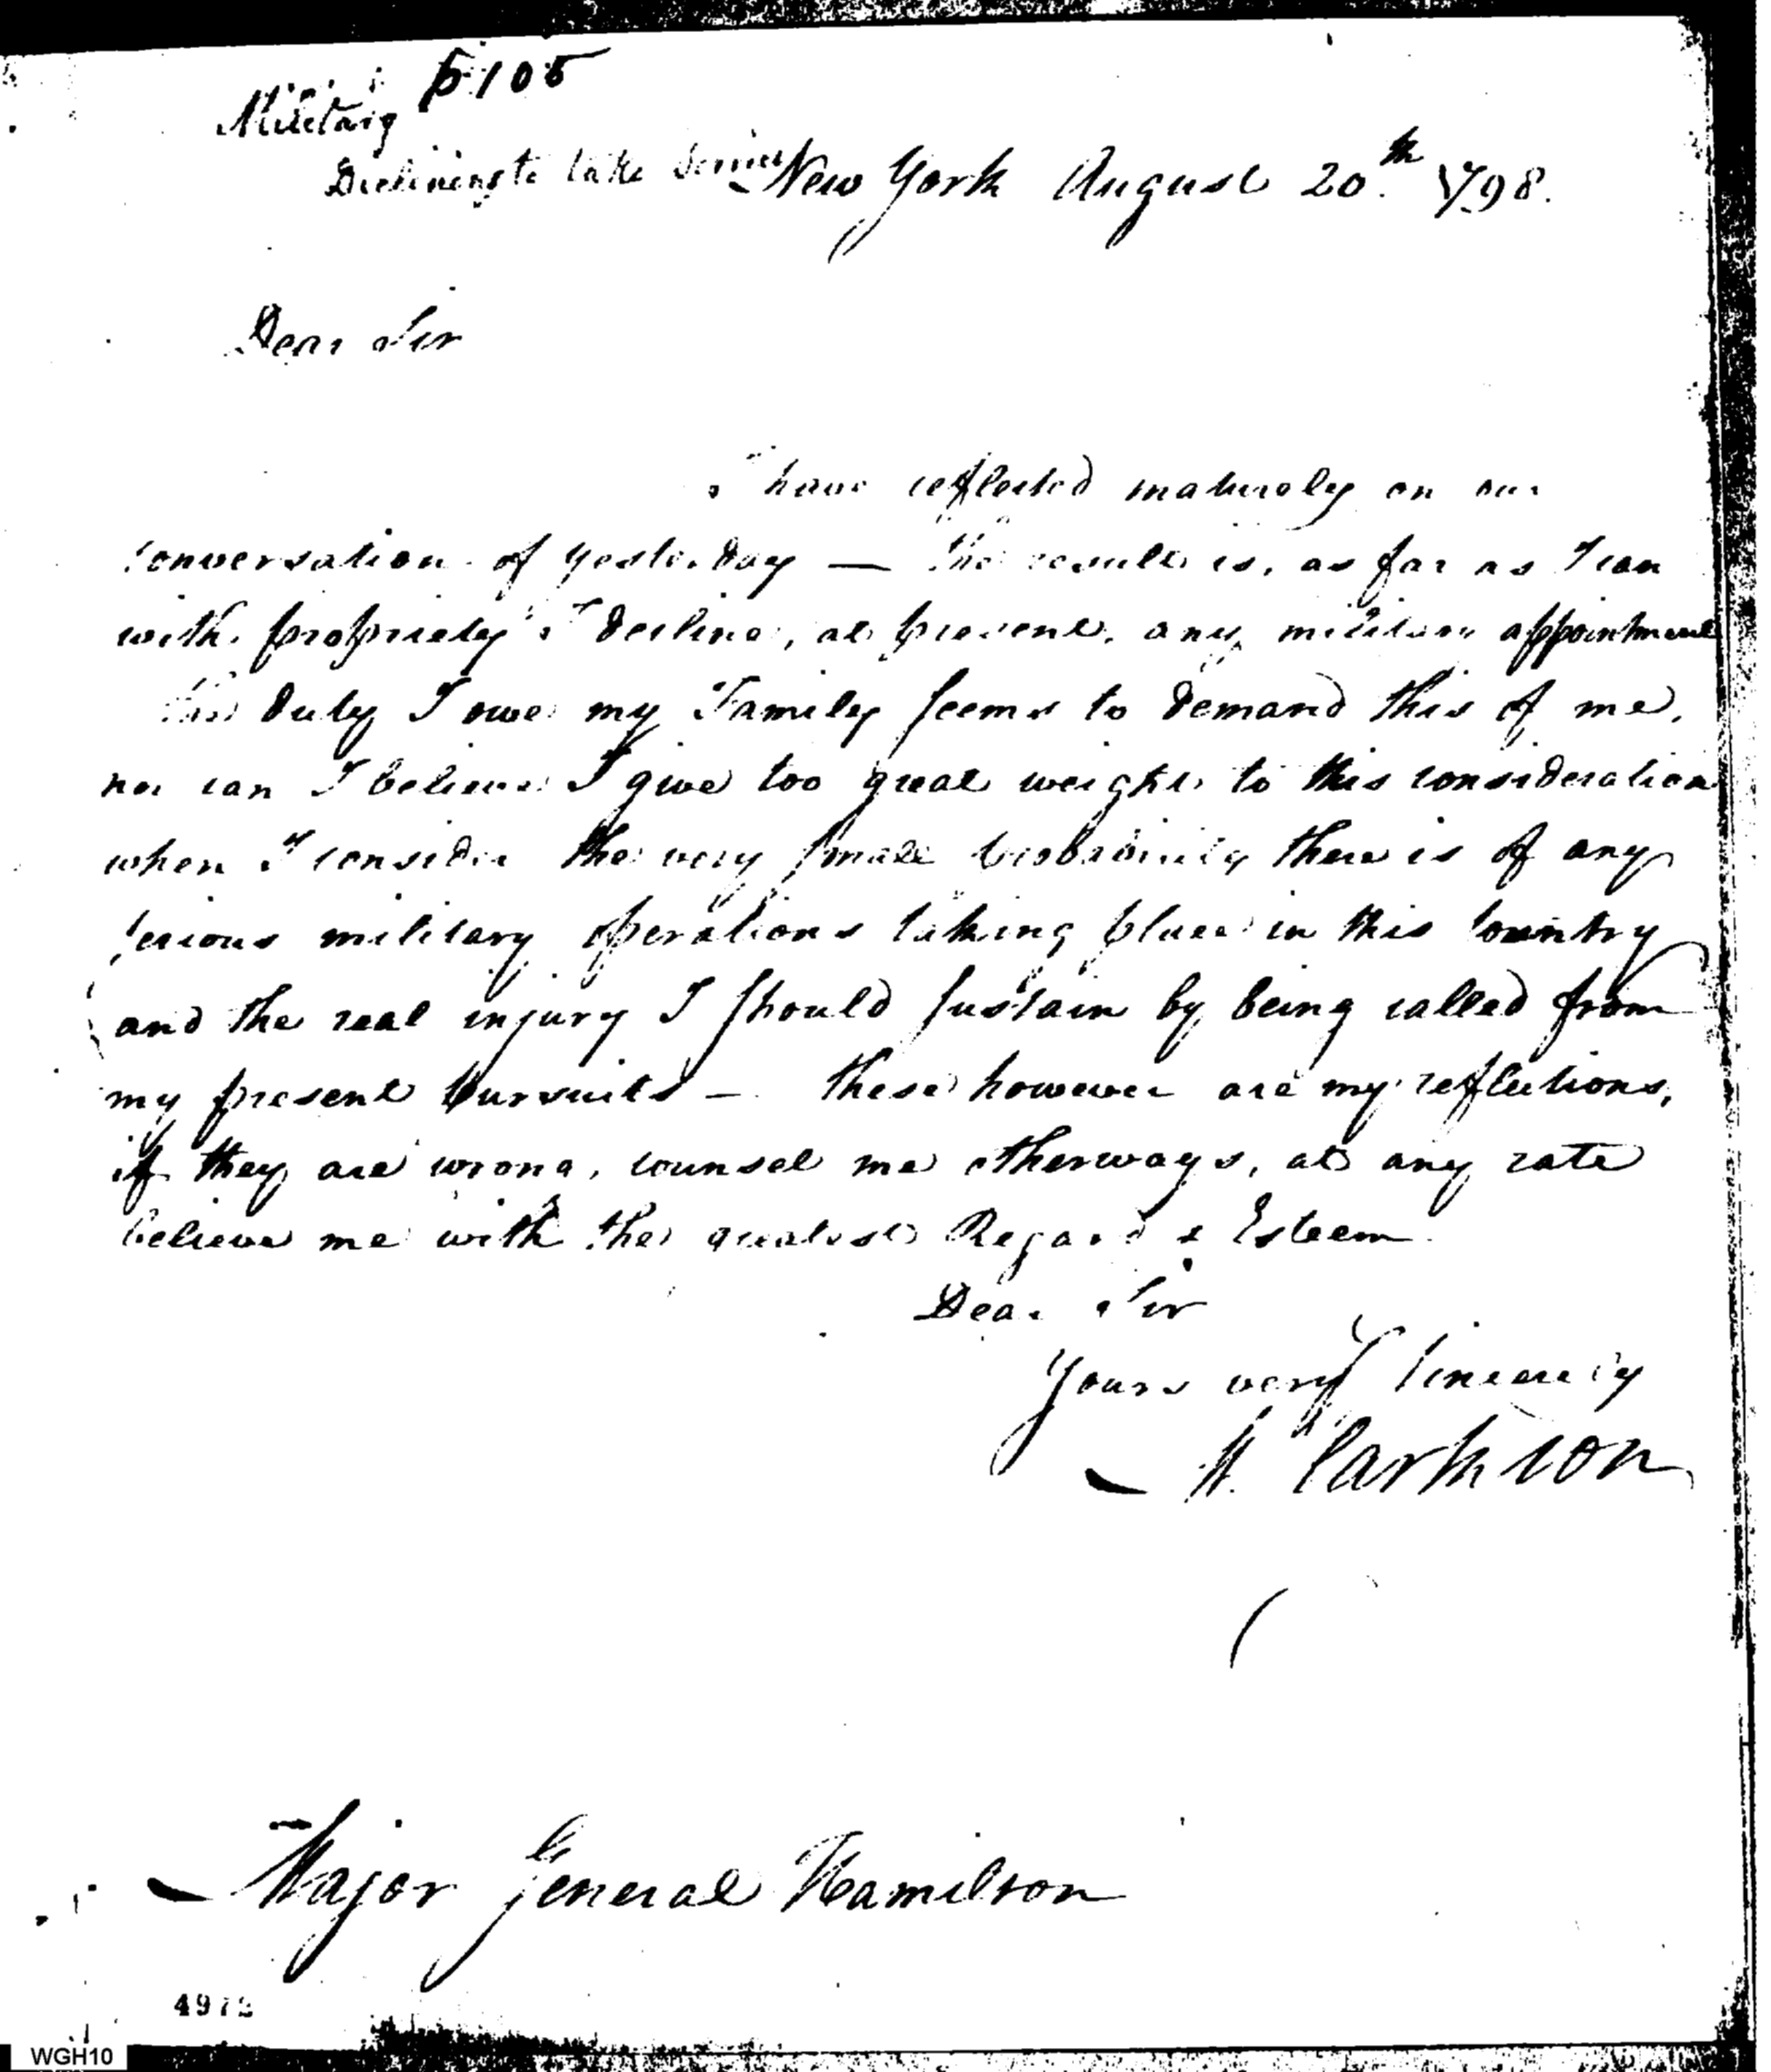 5105
Military
Declining to take Service
New York August 20th 1798.
Dear Sir
I have reflected maturely on our
Conversation of yesterday — The result is, as far as I can
with propriety I decline, at present, any military appointment
The duty I owe my Family seems to demand this of me,
nor can I believe I give too great weight to this consideration
when I consider the very small probability there is of any
serious military operations taking place in this Country
and the real injury I should sustain by being called from
my present pursuits — these however are my reflections,
if they are wrong, counsel me otherways, at any rate
believe me with the greatest Regard & Esteem
Dear Sir
Yours very sincerely
M. Clarkson
Major General Hamilton
WGH10